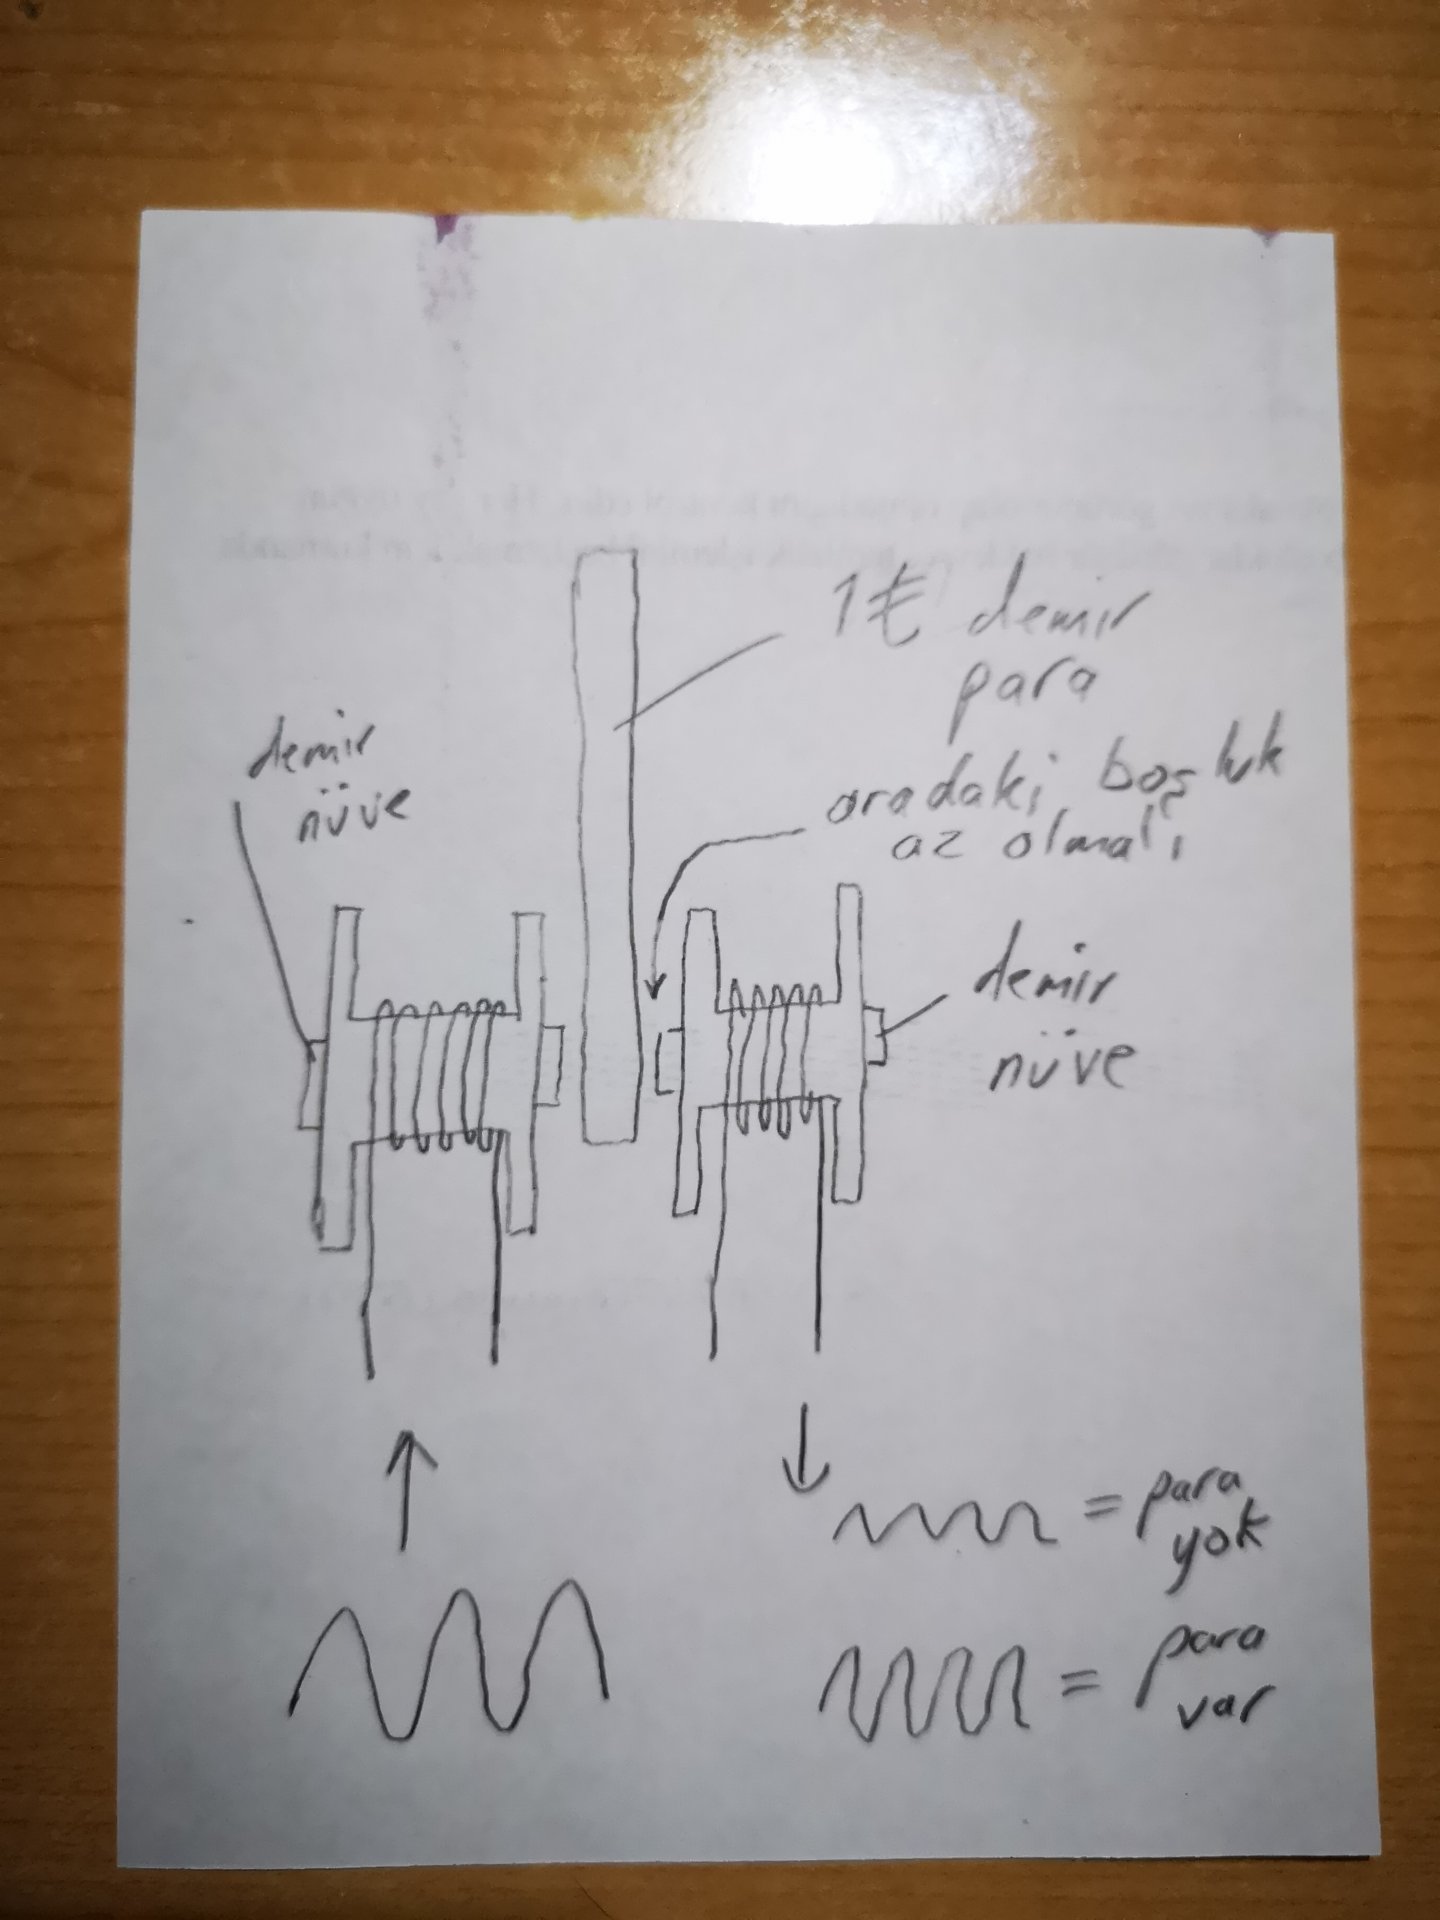 1₺ demir
para
demir
nüve
aradaki boşluk
az olmalı
demir
nüve
= para
yok
= para
var